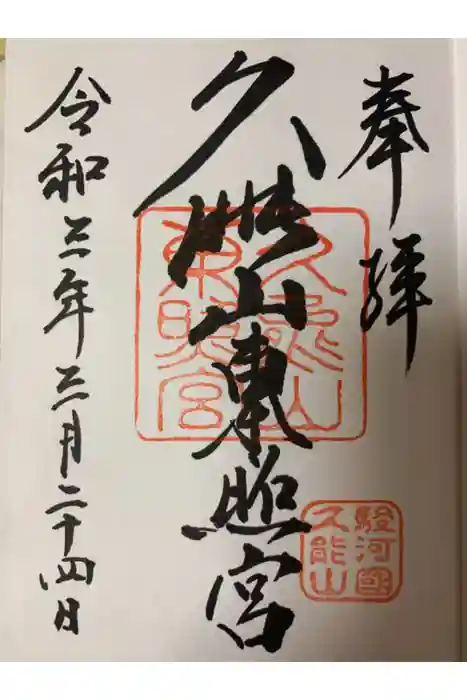 奉拝
久能山東照宮
久能山
東照宮
駿河國
久能山
令和三年三月二十四日